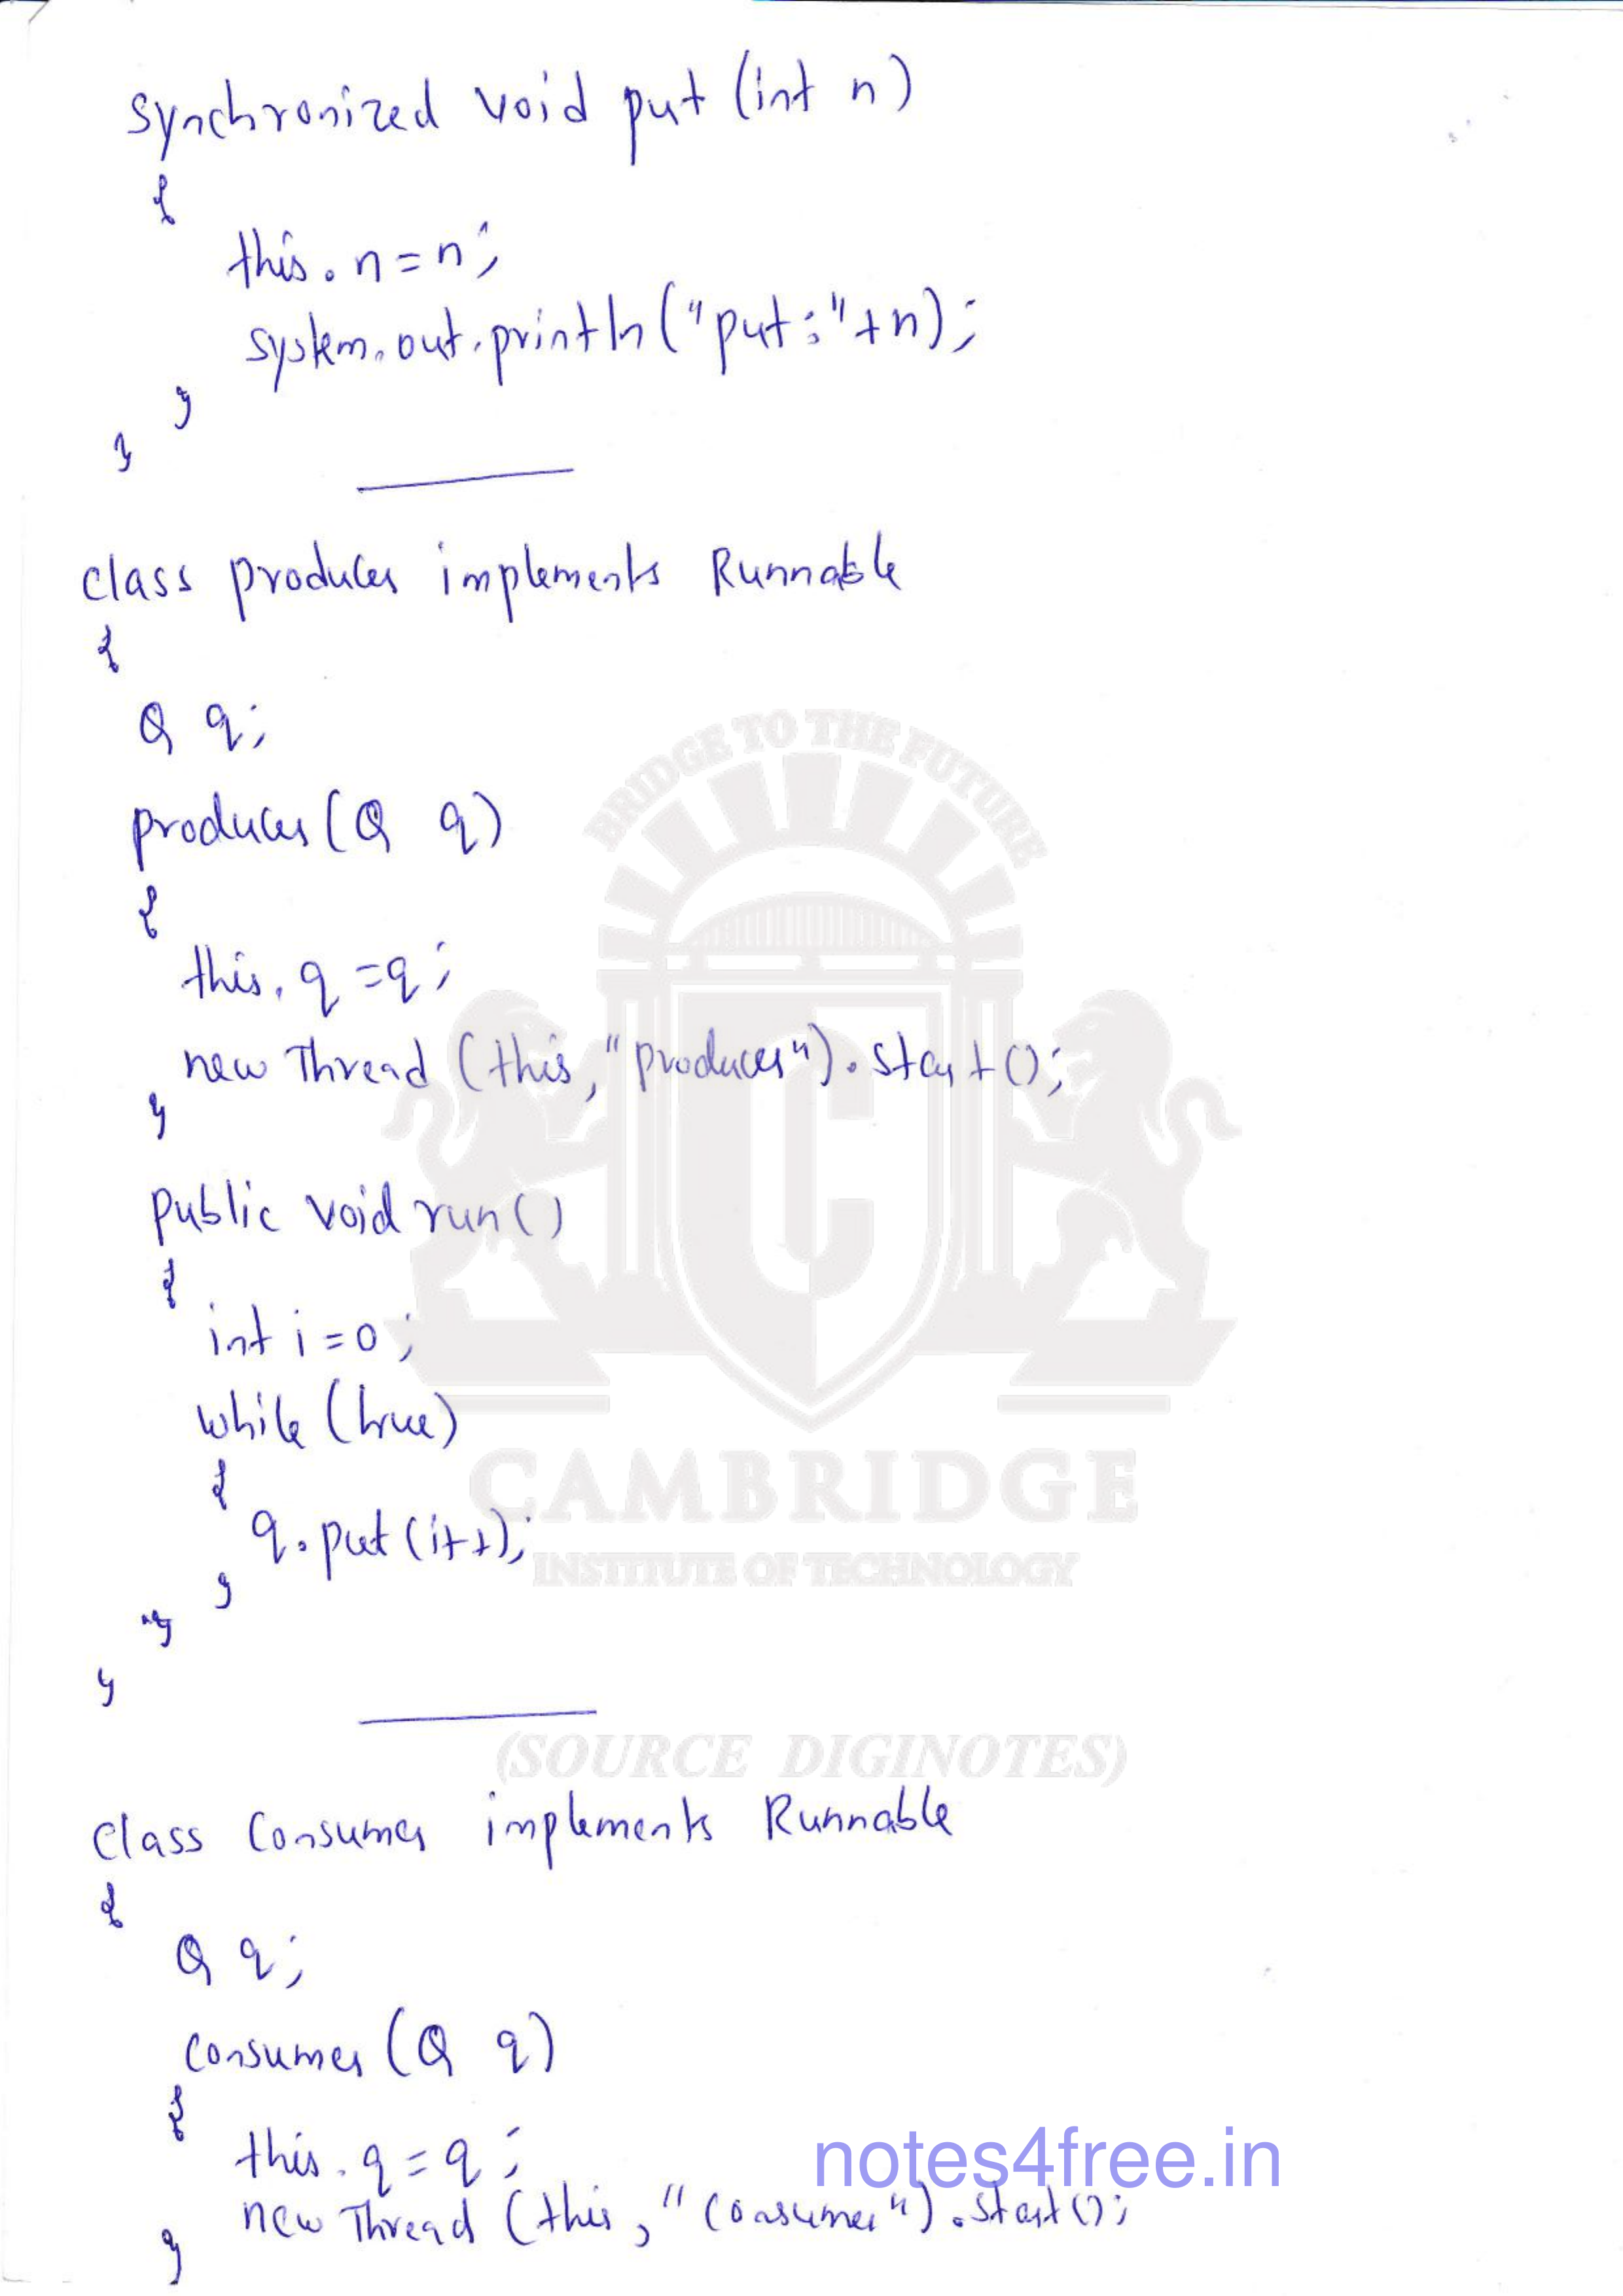 synchronized void put (int n)
{
this.n=n;
system.out.println("put:"+n);
}
}
class producer implements Runnable
{
Q q;
producer(Q q)
{
this.q=q;
new Thread (this,"producer").start();
}
public void run()
{
int i=0;
while (true)
{
q.put(i++);
}
}
}
class Consumer implements Runnable
{
Q q;
consumer (Q q)
{
this.q=q;
new Thread (this,"Consumer").start();
}
BRIDGE TO THE FUTURE
C
CAMBRIDGE
INSTITUTE OF TECHNOLOGY
(SOURCE DIGINOTES)
notes4free.in